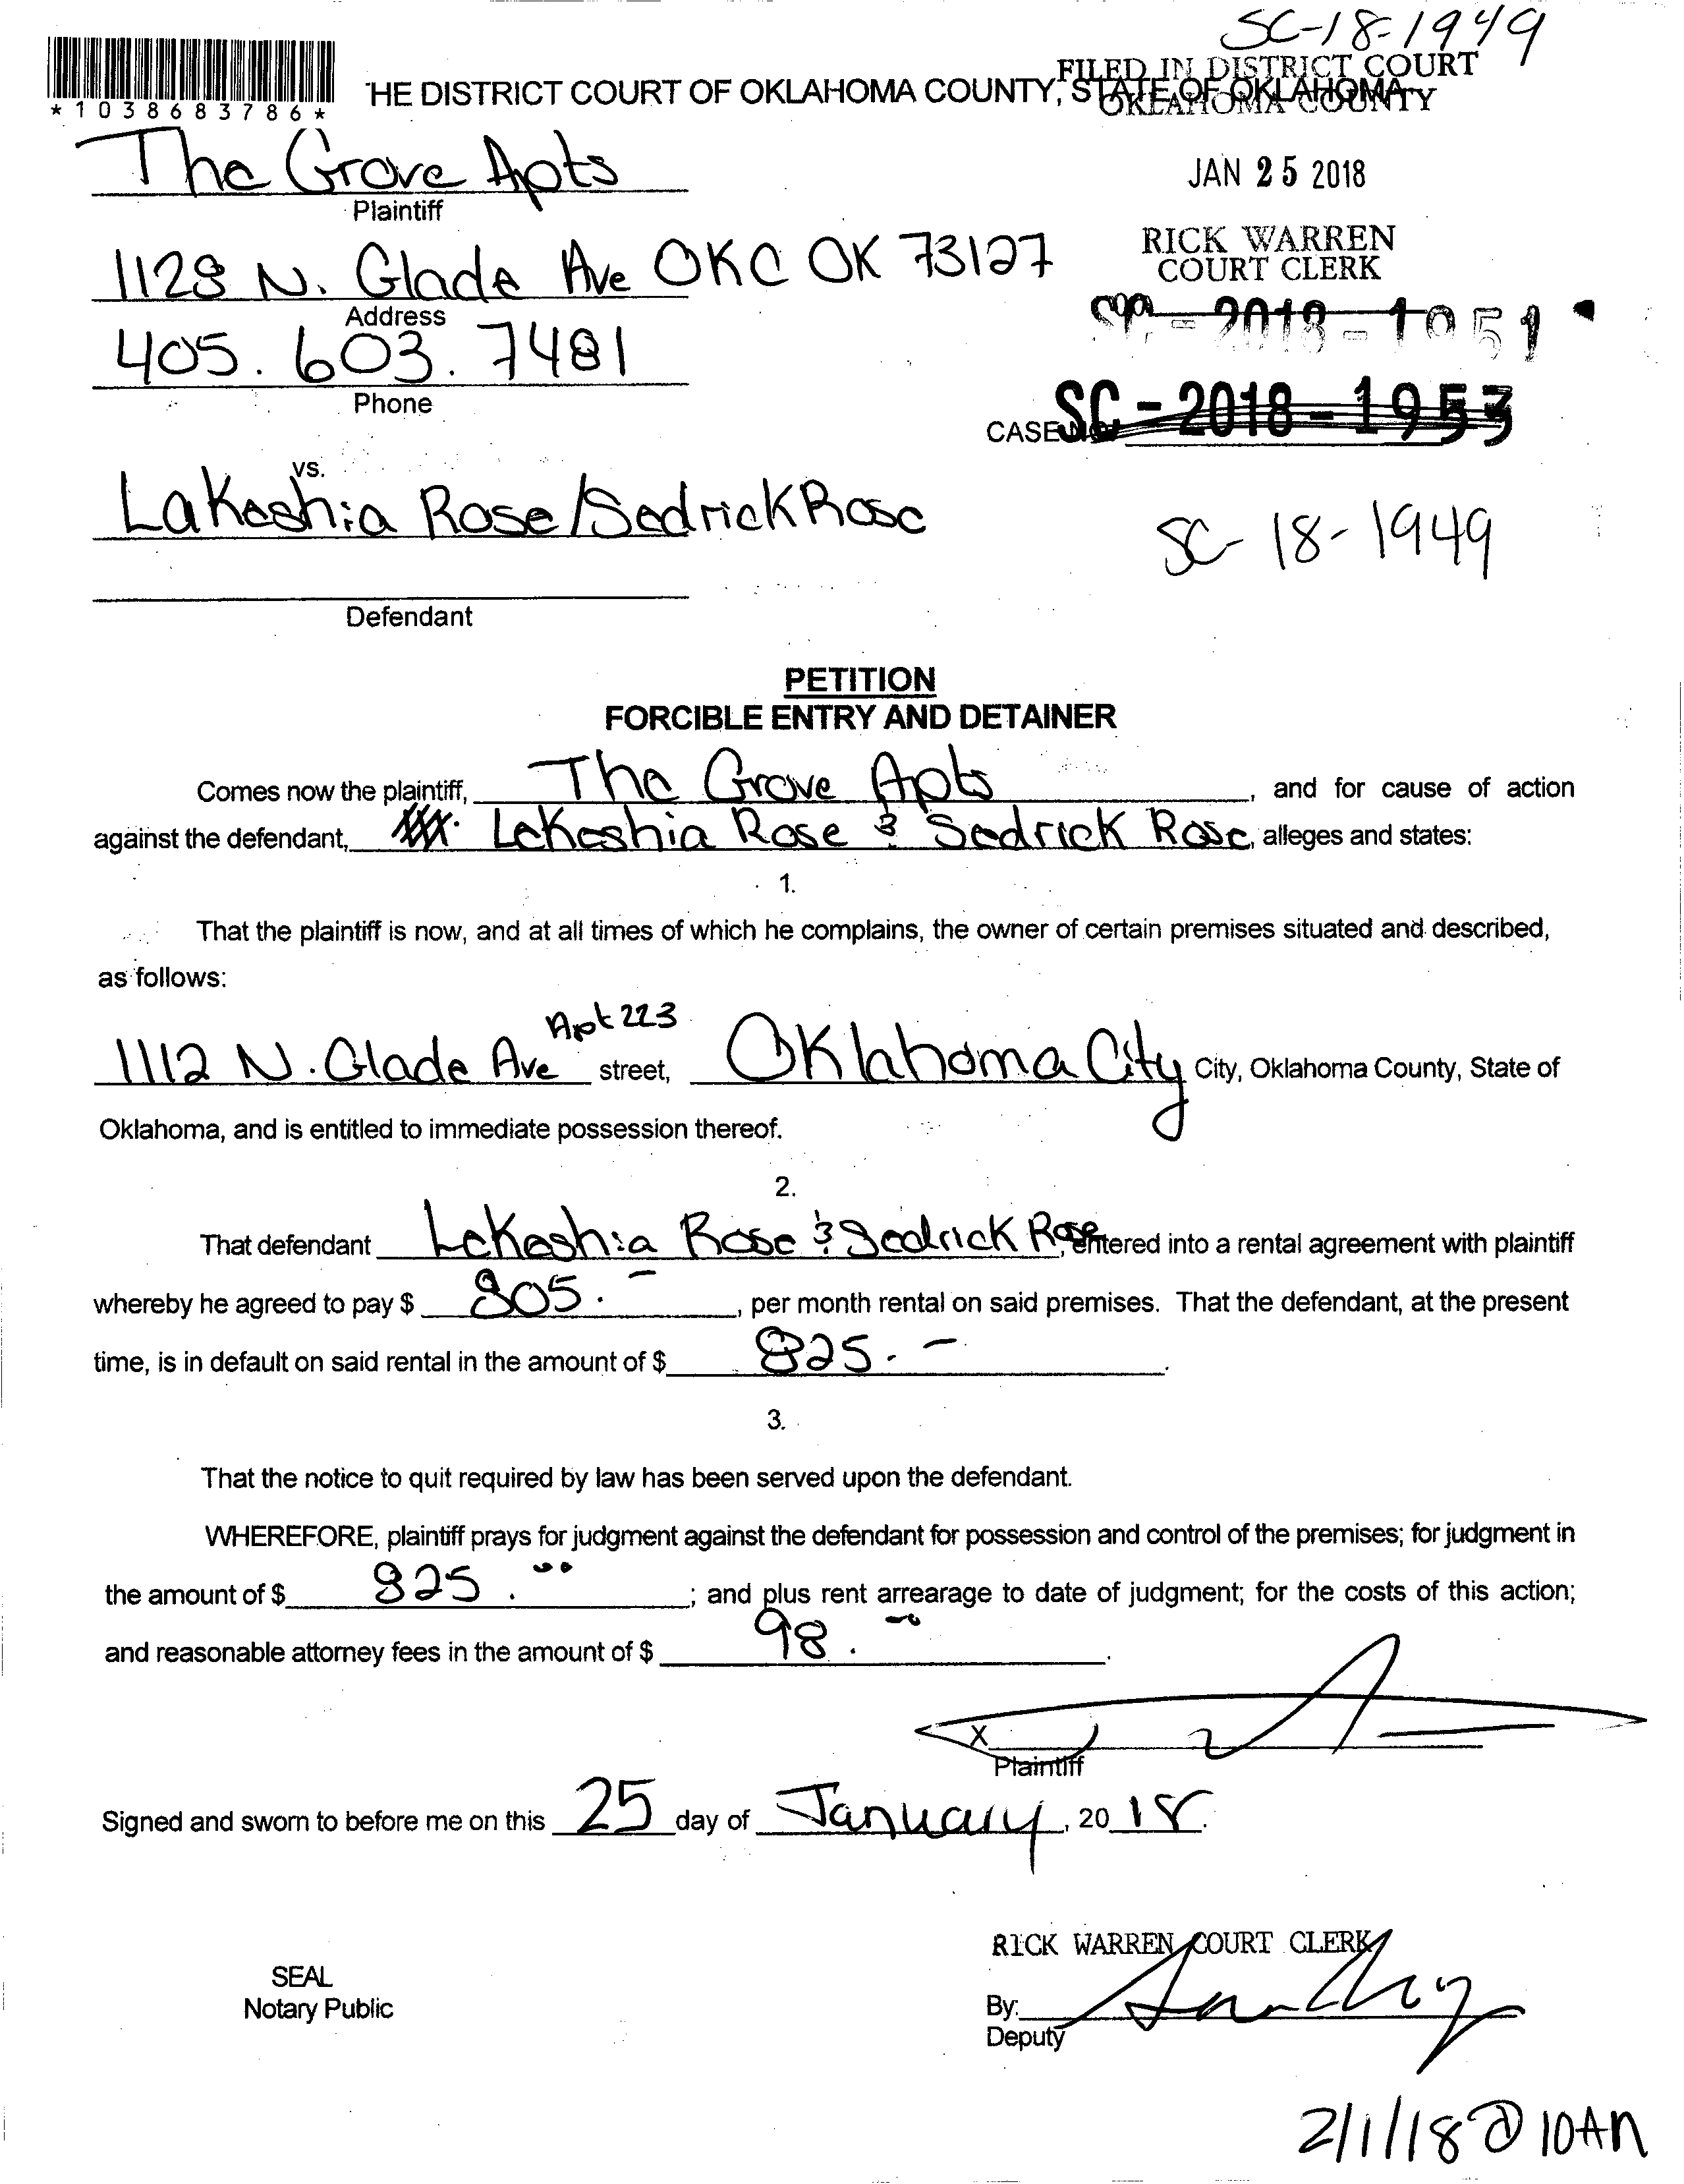 SC-18-1949
*1038683786*
HE DISTRICT COURT OF OKLAHOMA COUNTY, STATE OF OKLAHOMA
FILED IN DISTRICT COURT
OKLAHOMA COUNTY
The Grove Apts
Plaintiff
JAN 25 2018
1128 N. Glade Ave OKC OK 73127
Address
RICK WARREN
COURT CLERK
405.603.7481
Phone
SC-2018-1951
CASE NO. SC-2018-1953
vs.
Lakeshia Rose/Sedrick Rose
SC-18-1949
Defendant
PETITION
FORCIBLE ENTRY AND DETAINER
Comes now the plaintiff, The Grove Apts, and for cause of action
against the defendant, Lakeshia Rose & Sedrick Rose, alleges and states:
1.
That the plaintiff is now, and at all times of which he complains, the owner of certain premises situated and described,
as follows:
Apt 223
1112 N. Glade Ave street, Oklahoma City City, Oklahoma County, State of
Oklahoma, and is entitled to immediate possession thereof.
2.
That defendant Lakeshia Rose & Sedrick Rose, entered into a rental agreement with plaintiff
whereby he agreed to pay $ 805.-, per month rental on said premises. That the defendant, at the present
time, is in default on said rental in the amount of $ 825.-.
3.
That the notice to quit required by law has been served upon the defendant.
WHEREFORE, plaintiff prays for judgment against the defendant for possession and control of the premises; for judgment in
the amount of $ 825.00; and plus rent arrearage to date of judgment; for the costs of this action;
and reasonable attorney fees in the amount of $ 98.00.
X
Plaintiff
Signed and sworn to before me on this 25 day of January, 2018.
RICK WARREN COURT CLERK
SEAL
Notary Public
By:
Deputy
2/1/18 @ 10AM